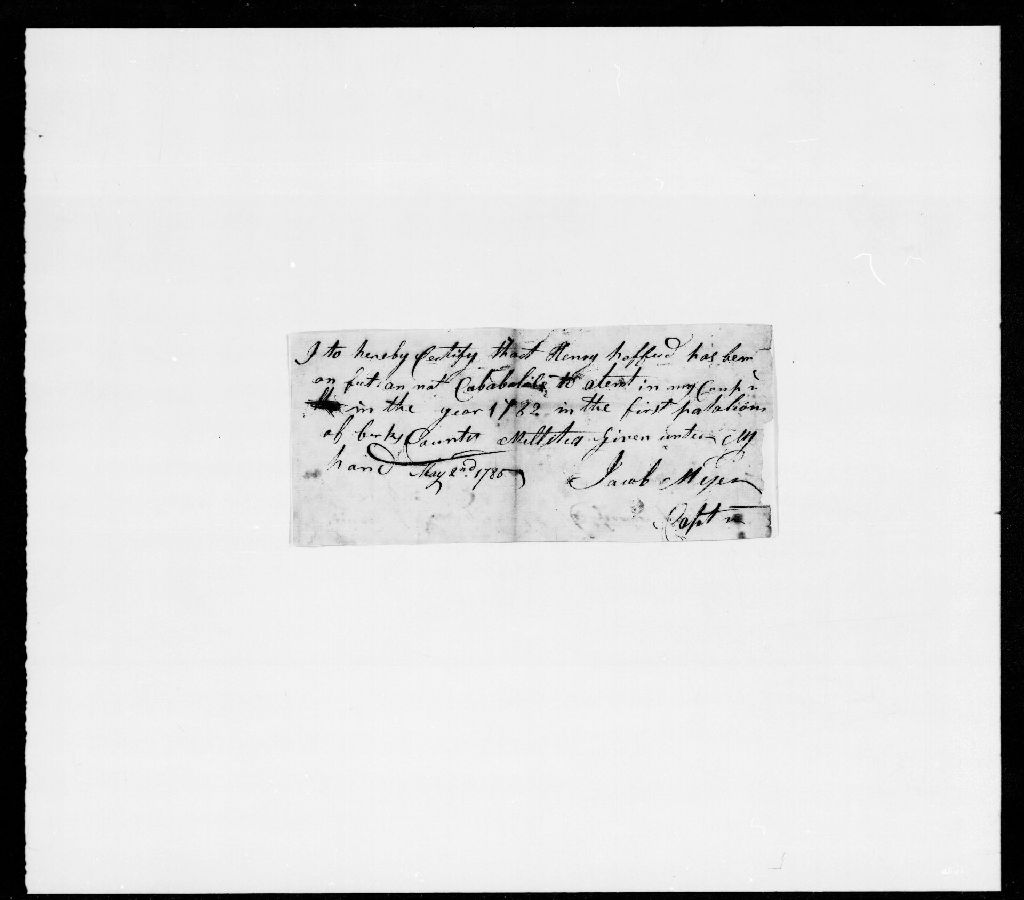 I to hereby Certify that Henry hofferd has been
an fut: an not to atent in my Comp
in the year 1782 in the first patalion
of berks Counter Millitea Given unter My
hand May 2nd. 1785
Jacob Myer
Capt